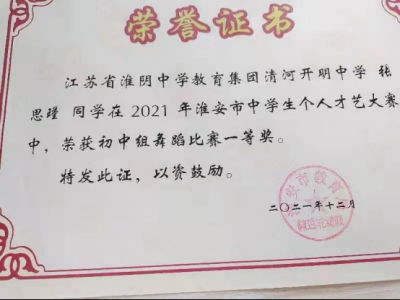 荣誉证书
江苏省淮阴中学教育集团清河开明中学 张
思瑾 同学在 2021 年淮安市中学生个人才艺大赛
中，荣获初中组舞蹈比赛一等奖。
特发此证，以资鼓励。
二〇二一年十二月